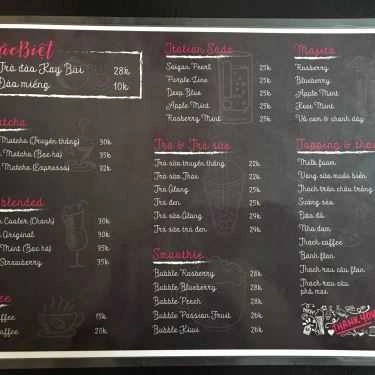 Đặc Biệt
Trà đào Kay Bùi 28k
Đào miếng 10k
Matcha
Matcha (Truyền thống) 30k
Matcha (Bạc hà) 35k
Matcha (Espresso) 32k
blended
Cooler (Chanh) 30k
Original 90k
Mint (Bạc hà) 35k
Strawberry 35k
15k
20k
Italian Soda
Saigon Pearl 25k
Purple Zino 25k
Deep Blue 25k
Apple Mint 25k
Rasberry Mint 25k
Trà & Trà sữa
Trà sữa truyền thống 22k
Trà sữa Thái 22k
Trà Olong 25k
Trà đen 25k
Trà sữa Olong 29k
Trà sữa trà đen 29k
Smoothie
Bubble Rasberry 28k
Bubble Blueberry 28k
Bubble Peech 28k
Bubble Passion Fruit 26k
Bubble Kiwi 26k
Mojito
Rasberry
Blueberry
Apple Mint
Kiwi Mint
Vỏ cam & chanh dây
Topping & thạch
Milk foam
Váng sữa muối biển
Thạch trân châu trắng
Sương sáo
Báo đỏ
Nha đam
Thạch coffee
Bánh flan
Thạch rau câu flan
Thạch rau câu
phô mai
THANK YOU